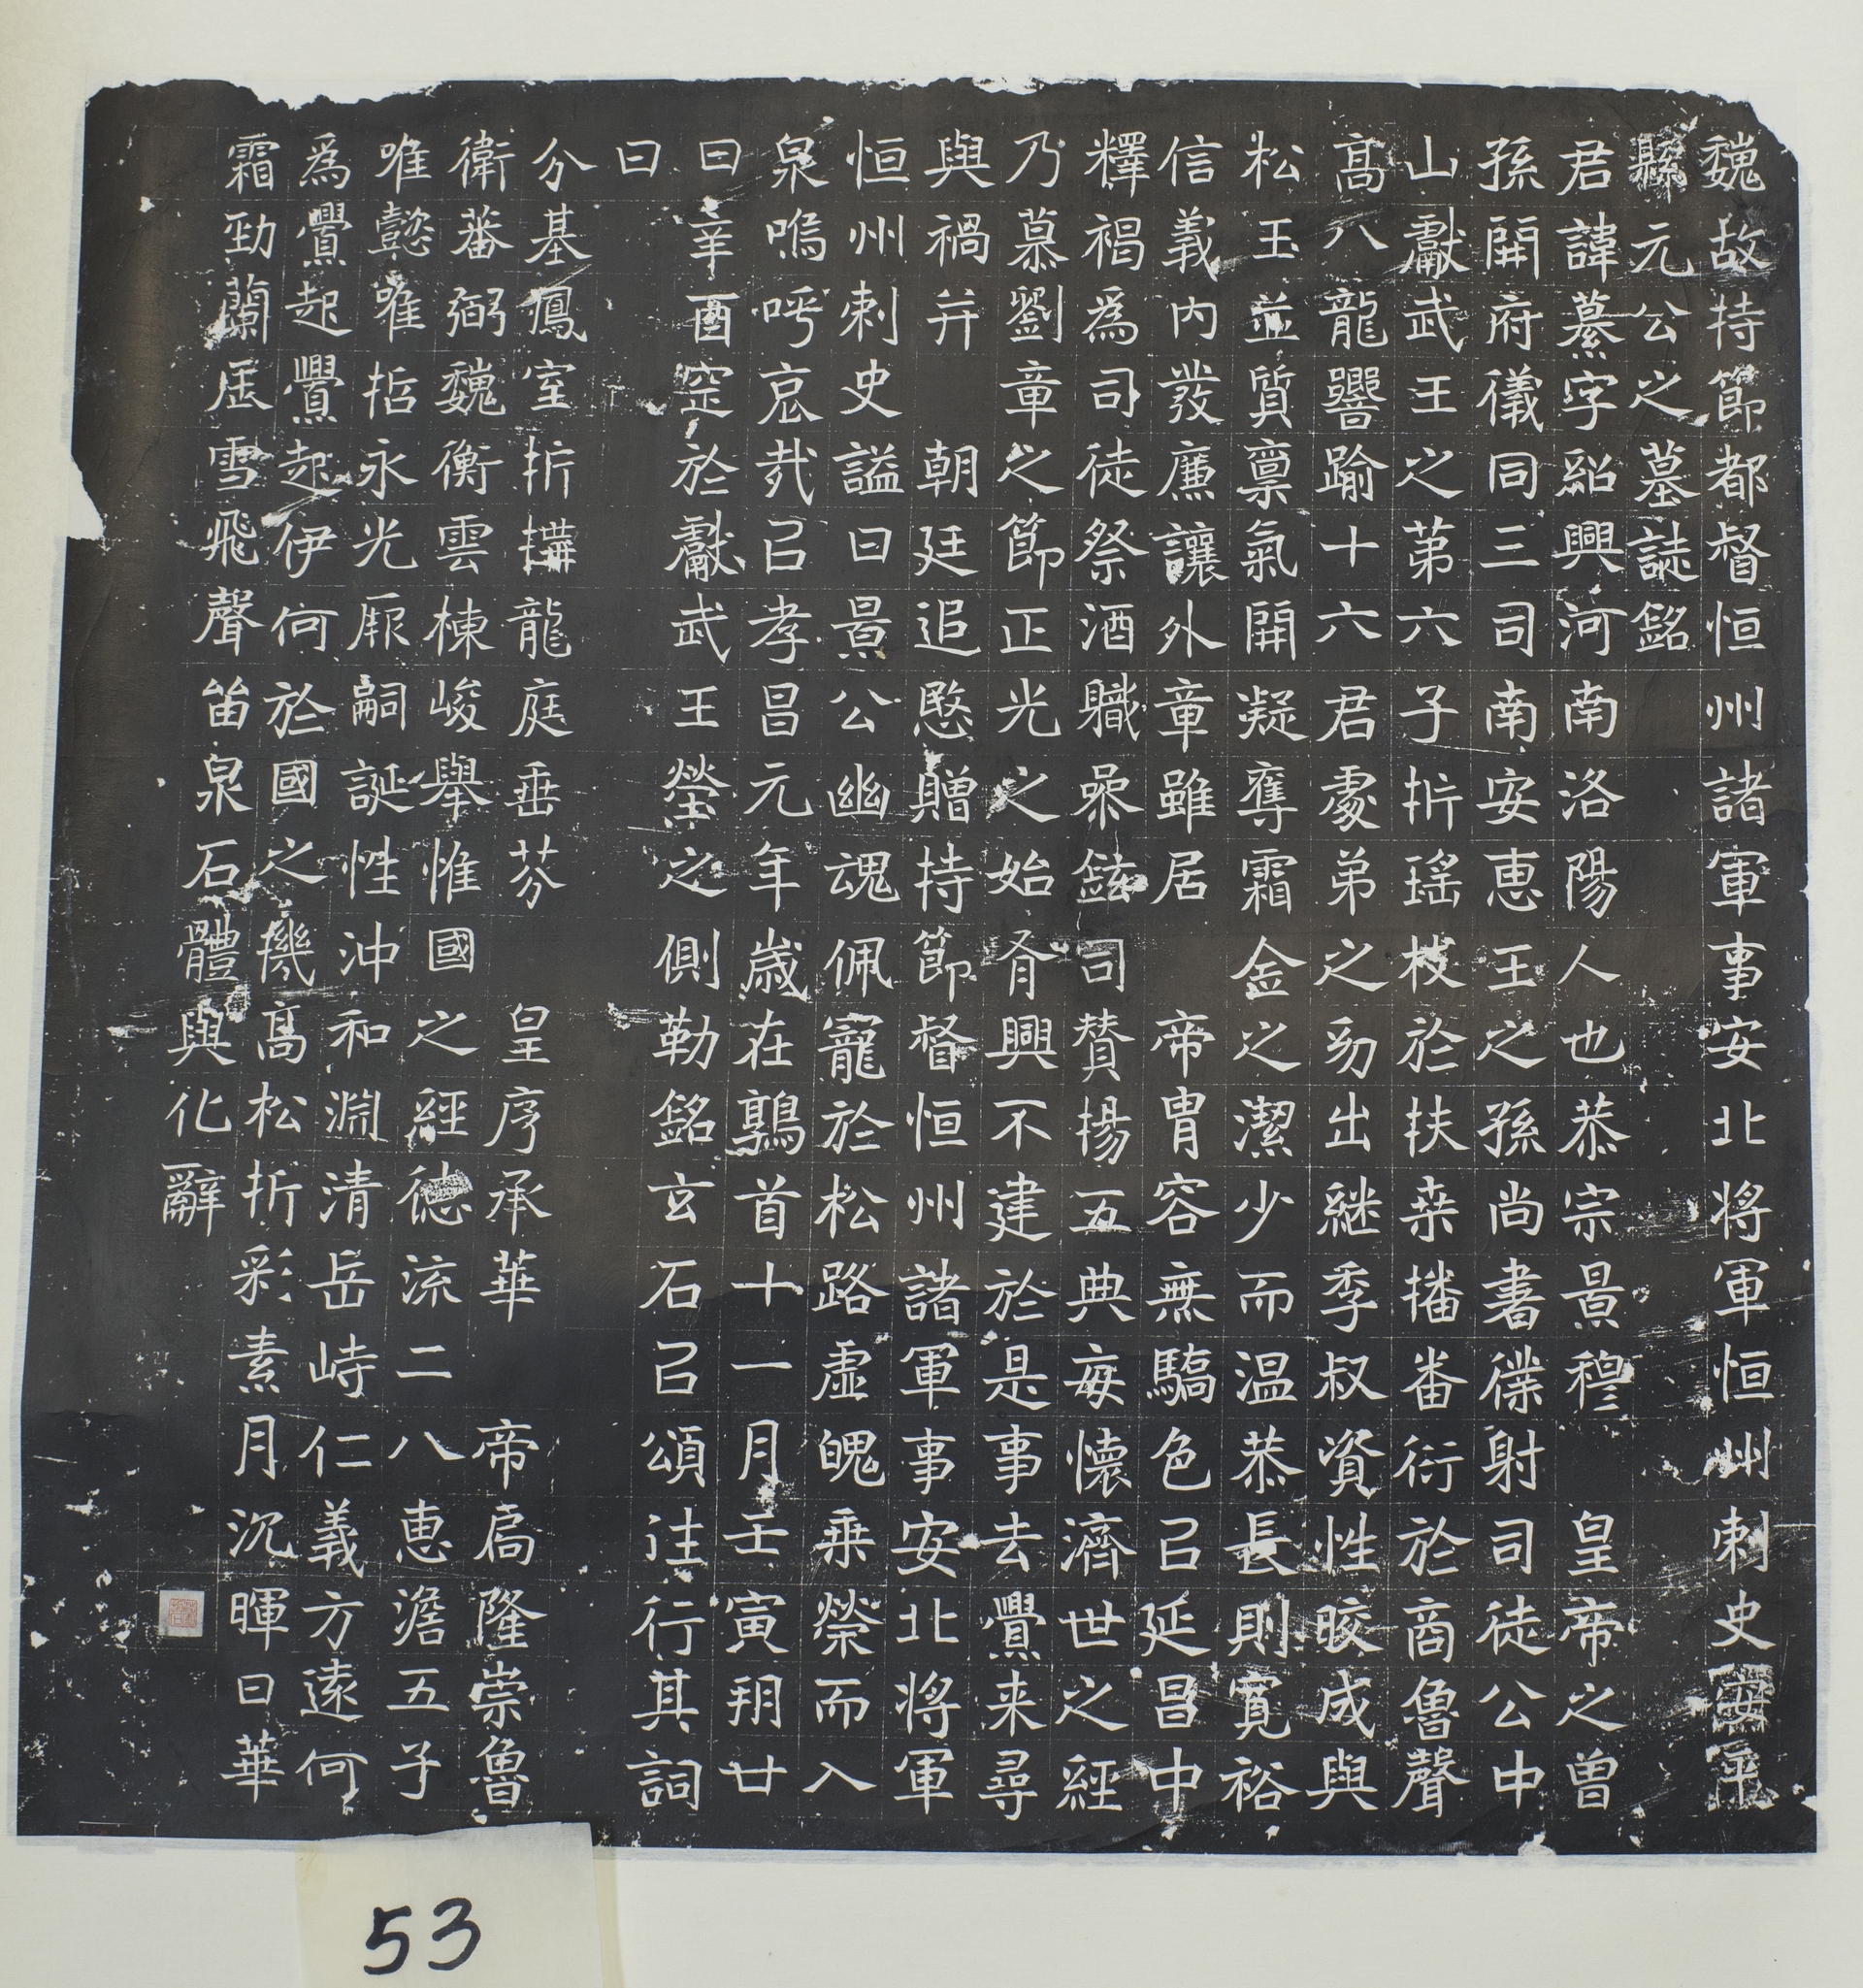 魏故持節都督恒州諸軍事安北將軍恒州刺史安平
縣元公之墓誌銘
君諱纂字紹興河南洛陽人也恭宗景穆皇帝之曾
孫開府儀同三司南安惠王之孫尚書僕射司徒公中
山獻武王之第六子折瑤枝於扶桒播番衍於商魯聲
高八龍響踰十六君處弟之幼出繼季叔資性皎成與
松玉並質禀氣開凝奪霜金之潔少而温恭長則寬裕
信義內發廉讓外章雖居帝胄容無驕色已延昌中
釋褐為司徒祭酒職喿鉉司賛揚五典每懷濟世之經
乃慕劉章之節正光之始肴興不建於是事去舋来尋
與禍并朝廷追愍贈持節督恒州諸軍事安北將軍
恒州刺史謚曰景公幽魂佩寵於松路虛魄乗榮而入
泉嗚呼哀哉已孝昌元年歲在鶉首十一月壬寅朔廿
日辛酉窆於獻武王塋之側勒銘玄石已頌往行其詞
曰
分基鳳室折搆龍庭垂芬皇序承華帝扄隆崇魯
衛蕃弼魏衡雲棟峻舉惟國之經德流二八惠澹五子
唯懿唯哲永光厥嗣誕性沖和淵清岳峙仁義方遠何
為舋起舋起伊何於國之機高松折彩素月沉暉日華
霜勁蘭居雪飛聲留泉石體與化辭
53